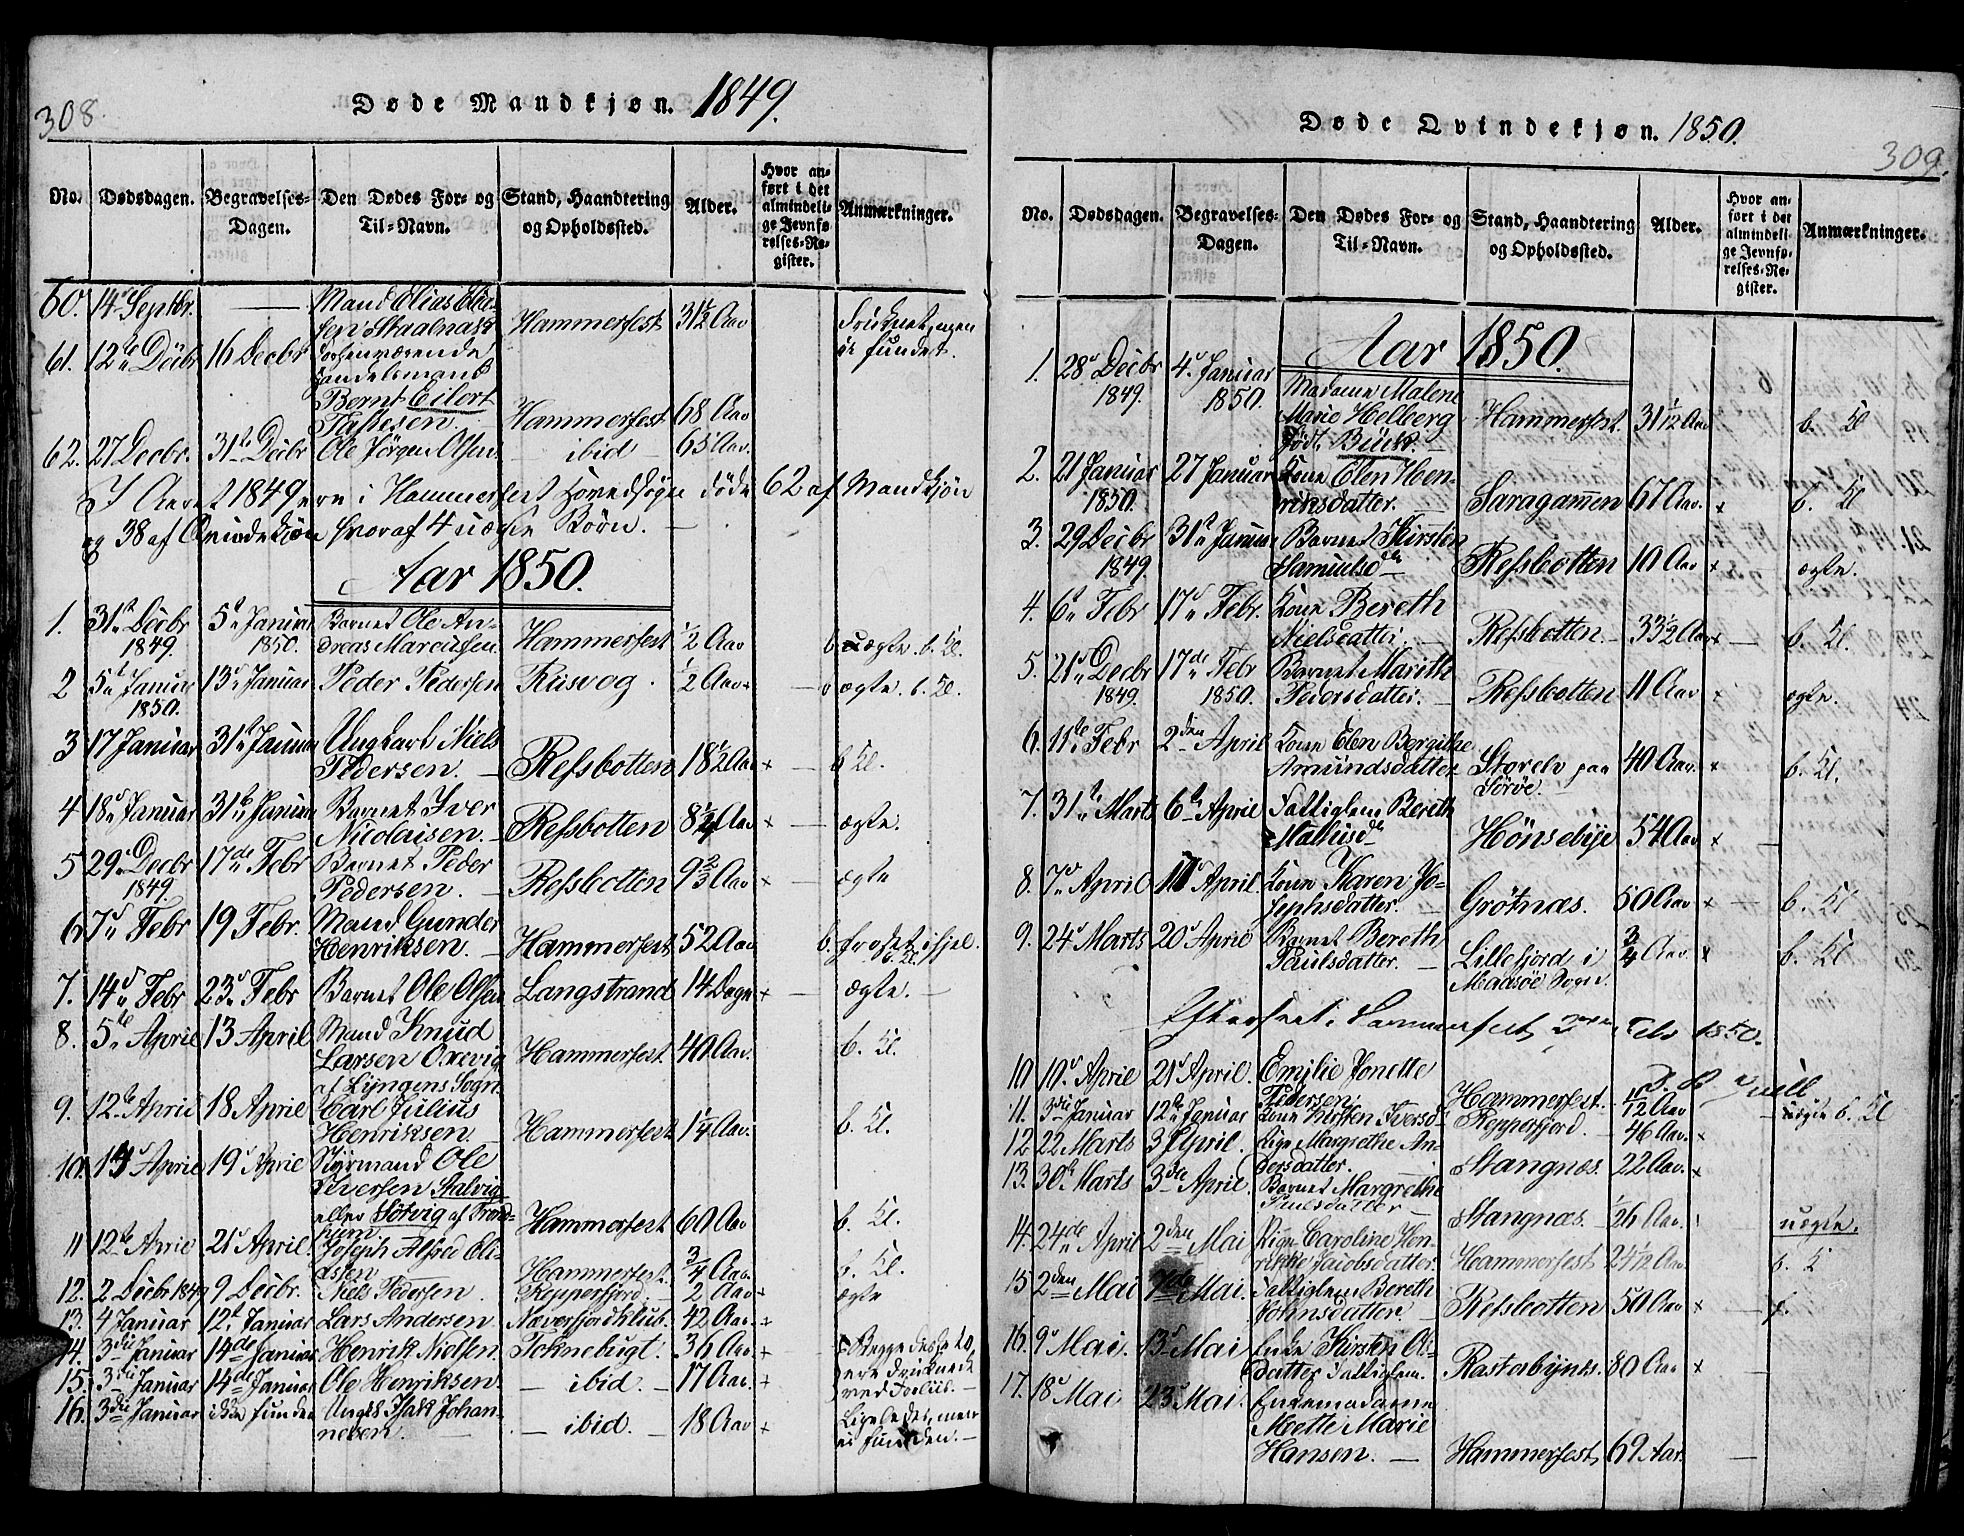 308.
Døde Mandkjøn. 1849.
No. Dødsdagen. Begravelses-Dagen. Den Dødes For- og Til-Navn. Stand, Haandtering og Opholdssted. Alder. Hvor anført i det almindelige Jevnførelses-Register. Anmærkninger.
60. 14 Septbr. — Mand Elias Eliasen Staalnask Hammerfest 31½ Aar druknet, men ei funden.
61. 12te Decbr 16 Decbr forhenværende Handelsmand
Bernt Eilert
Hammerfest 68 Aar
62. 27 Decbr. 31te Decbr Ole Jørgen Olsen — ibid — 65 Aar.
I Aaret 1849 ere i Hammerfest Hovedsogn døde 62 af Mandkjøn
og 38 af Qvindekjøn hvoraf 4 uægte Børn. —
Aar 1850.
1. 31te Decbr 1849. 5te Januar 1850. Barnet Ole Andreas Marcussen Hammerfest ½ Aar uægte. b. Kl.
2 5te Januar 1850. 13 Januar Peder Pedersen Riisvog. ½ Aar + — ægte. b. Kl.
3 17 Januar 31te Januar Ungkarl Niels Pedersen. — Refsbotten 18½ Aar + — b Kl.
4 18 Januar 31te Januar Barnet Iver Nicolaisen. — Refsbotten 8¼ Aar + — ægte.
5 29 Decbr 1849. 17de Febr Barnet Peder Pedersen. — Refsbotten 9⅔ Aar + — ægte
6 7 Febr 19 Febr. Mand Gunder Henriksen. — Hammerfest 52 Aar frosset ihjel. b. Kl.
7. 14 Febr 23 Febr Barnet Ole Olsen Langstrand 14 Dage + — ægte. —
8. 5te April 13 April Mand Knud Larsen Oxevig af Lyngens Sogn Hammerfest 40 Aar. b. Kl.
9. 12te April 18 April Carl Julius Henriksen. — Hammerfest 1¼ Aar. b. Kl.
10. 14 April 19 April Styrmand Ole Iversen Stalvig eller Sørvig af Trondhjem — Hammerfest 60 Aar b. Kl.
11 12te April 21 April. Joseph Alfred Eliasen Hammerfest ¾ Aar. b. Kl.
12. 2 Decbr 1849 9 Decbr. Niels Pedersen Repperfjord. — 2 Aar + ægte
13. 4 Januar 12te Januar Lars Andersen. Næverfjordklub. 42 Aar. +
14. 3die Januar 14de Januar Henrik Nielsen. Toknebugt. 36 Aar + Begge disse
15. 3die Januar 14de Januar Ole Henriksen. — ibid. — 17 Aar. + ere druknede
16. 3die Januar ikke funden Ungk Isak Johannesen. — ibid. — 18 Aar + Ligeledes, men ei funden. —
309.
Døde Qvindekjøn. 1850.
No. Dødsdagen. Begravelses-Dagen. Den Dødes For- og Til-Navn. Stand, Haandtering og Opholdssted. Alder. Hvor anført i det almindelige Jevnførelses-Register. Anmærkninger.
Aar 1850.
1. 28 Decbr 1849. 4 Januar 1850. Madame Malene Marie Helberg født Buck. — Hammerfest. 31 1/12 Aar b. Kl
2. 21 Januar 1850. 27 Januar Kone Elen Henriksdatter. — Saragammen 67 Aar. + b. Kl
3. 29 Decbr 1849. 31te Januar Barnet Kirsten Samuelsdtr — Refsbotten 10 Aar + ægte.
4. 6te Febr 17 Febr. Kone Bereth Nielsdatter. — Refsbotten. 33½ Aar + — b. Kl.
5. 21 Decbr 1849. 17de Febr 1850. Barnet Marith Pedersdatter. — Refsbotten 11 Aar + ægte.
6. 11te Febr 2den April Kone Elen Bergithe Amundsdatter Storelv paa Sørøe. — 40 Aar. + b. Kl.
7. 31te Marts 6te April Fattiglem Bereth Mathisdtr — Hønsebye 54 Aar + —
8. 7 April 11 April. Kone Karen Josephsdatter. — Grøtnæs. 50 Aar + — b. Kl
9. 24 Marts 20 April Barnet Bereth Paulsdatter. — Lillefjord i Maasøe Sogn ¾ Aar + b. Kl
Efterseet i Hammerfest 1850.
10 10 April 21 April. Emilie Jonette Pedersen. Hammerfest. 10/12 Aar uægte b. Kl
11. 3die Januar 12te Januar Kone Kirsten Iversd Repperfjord. — 46 Aar. +
12 22 Marts 3 April. Pige Margrethe Andersdatter. — Stangnæs. 22 Aar. +
13. 30te Marts 3die April. Barnet Margrethe Paulsdatter — Stangnæs. uægte.
14. 24de April 2den Mai Pige Caroline Henrikke Jacobsdatter. Hammerfest 24 1/12 Aar. b. K
15 2den Mai 7de Mai. Fattiglem Bereth Johnsdatter. — Refsbotten 50 Aar + — f.
16. 9 Mai. 13 Mai Enke Kirsten datter Fattiglem. Rastabynes. 80 Aar +
17. 18 Mai 23 Mai. Enkemadame Mette Marie Hansen. — Hammerfest, 69 Aar. —